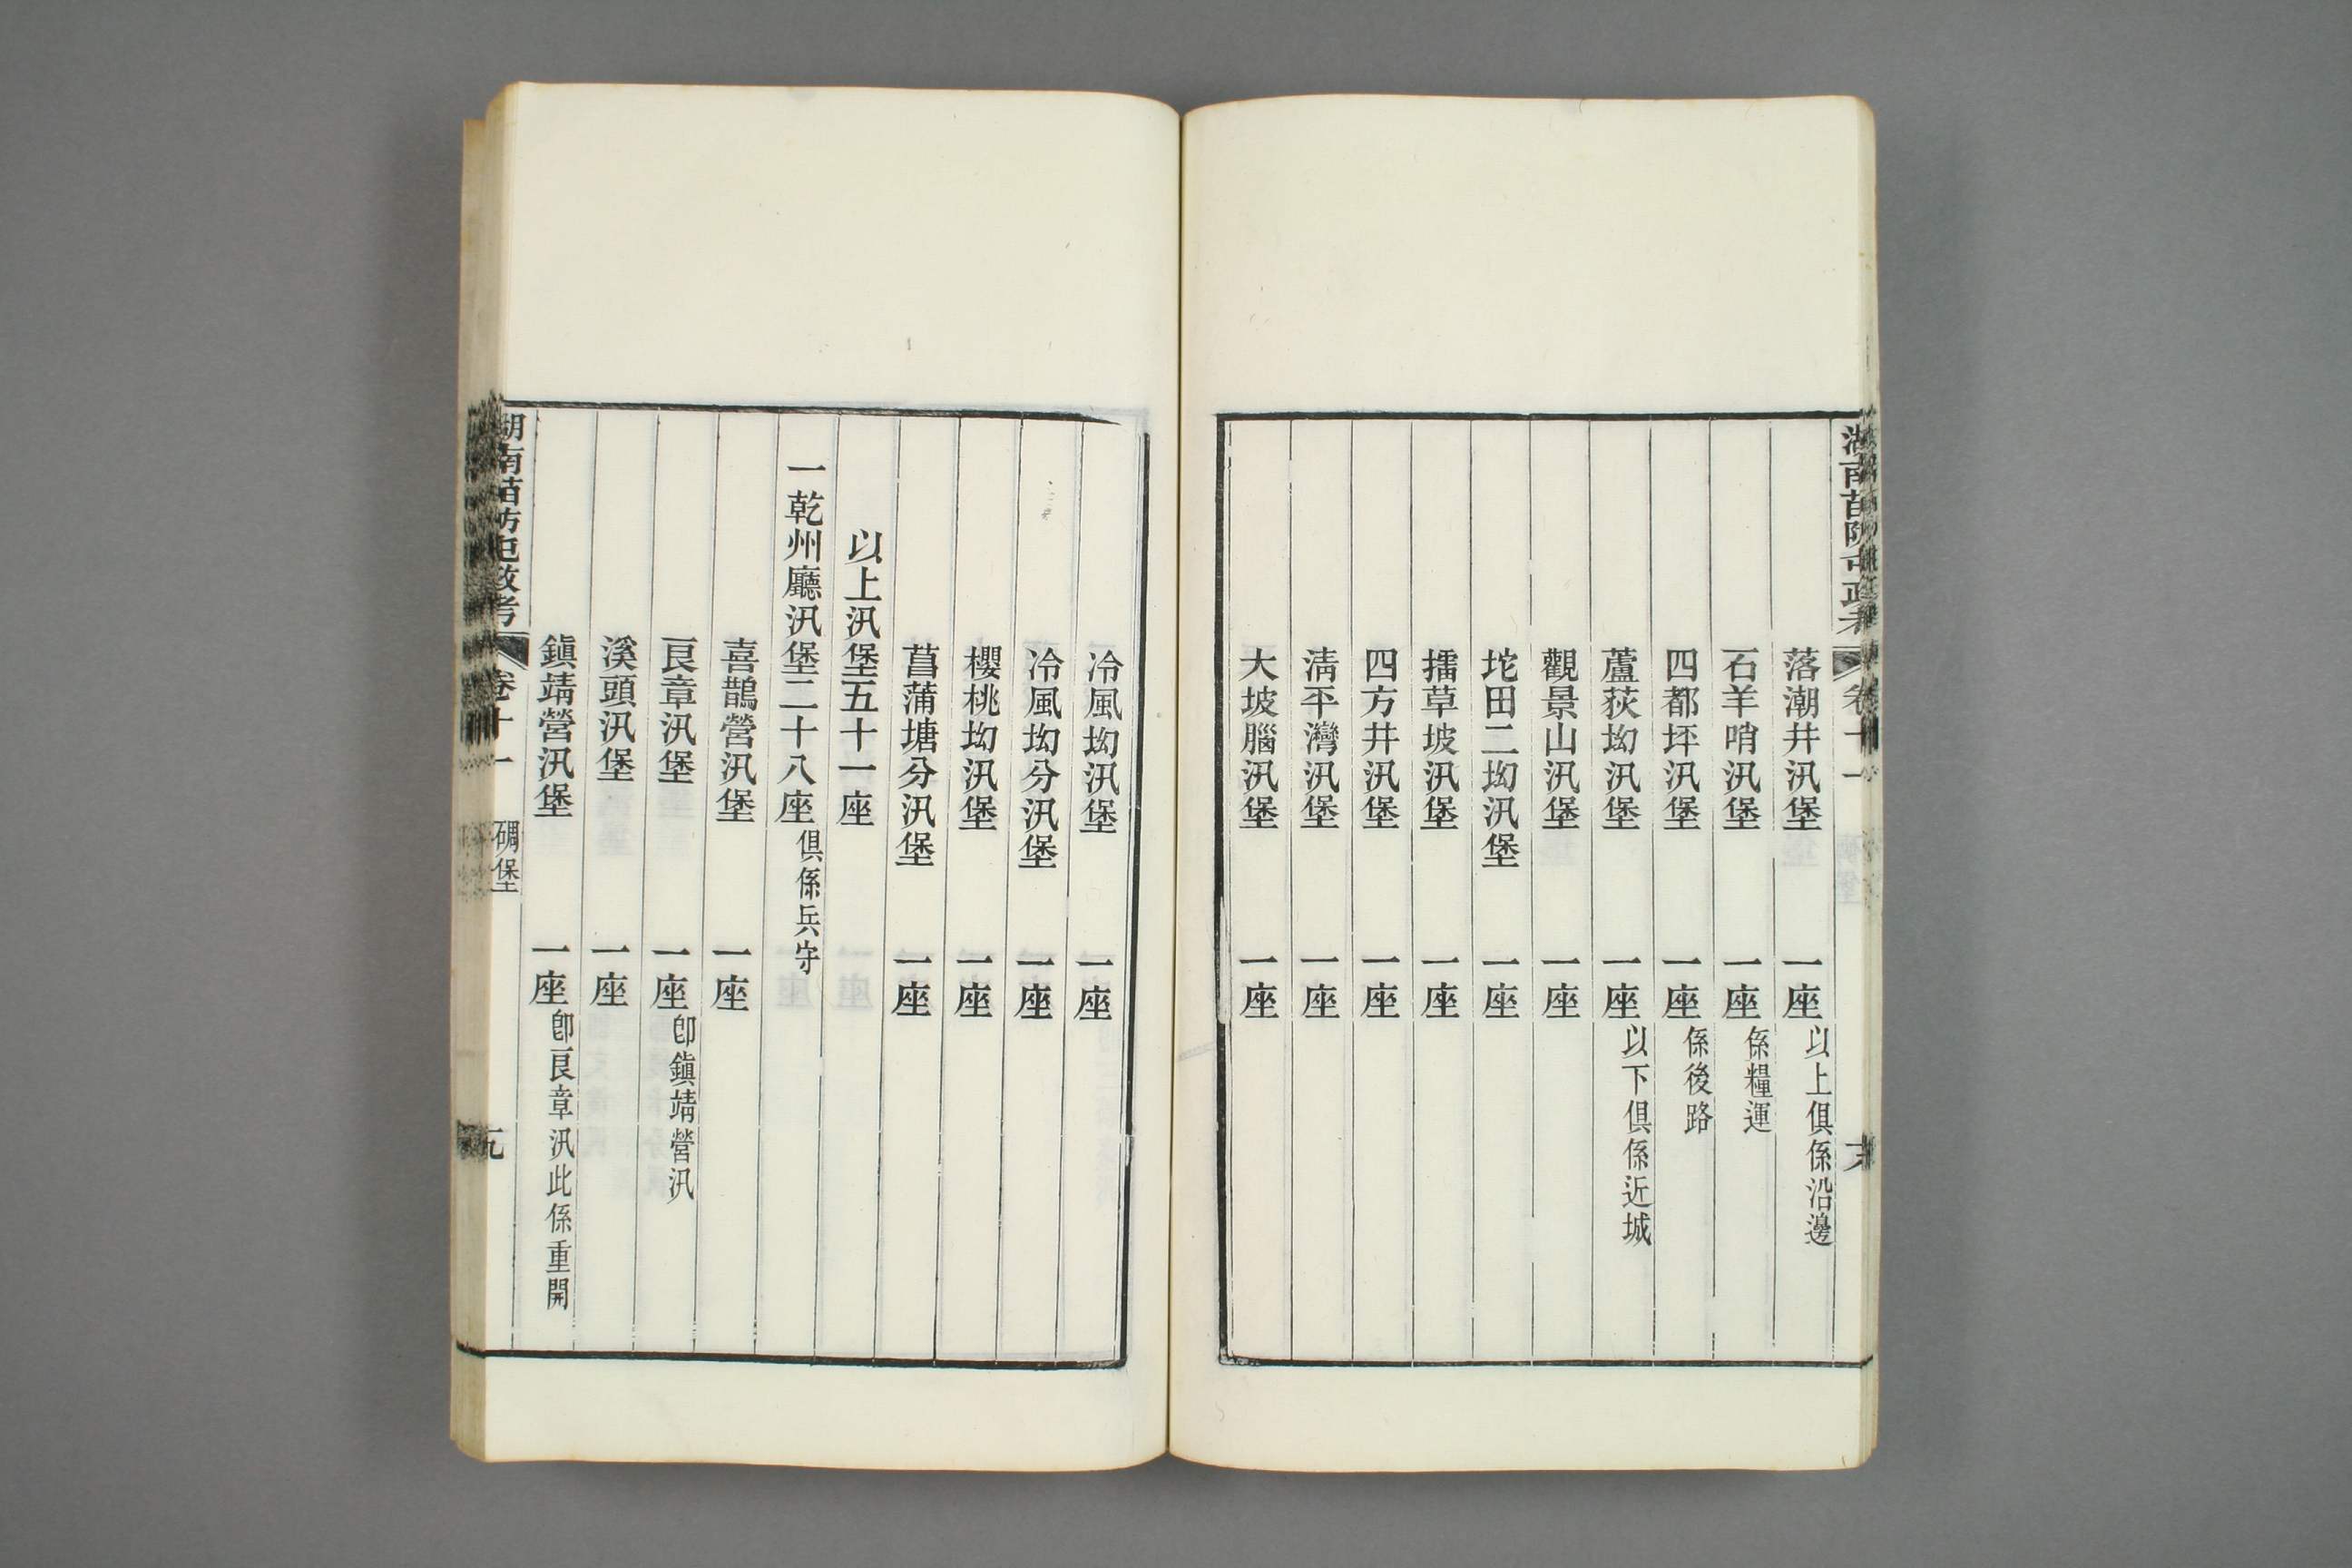 湖南苗防屯政考 卷十一
落潮井汛堡 一座 以上俱係沿邊
石羊哨汛堡 一座 係糧運
四都坪汛堡 一座 係後路
蘆荻坳汛堡 一座 以下俱係近城
觀景山汛堡 一座
坨田二坳汛堡 一座
擂草坡汛堡 一座
四方井汛堡 一座
清平灣汛堡 一座
大坡腦汛堡 一座
冷風坳汛堡 一座
冷風坳分汛堡 一座
櫻桃坳汛堡 一座
菖蒲塘分汛堡 一座
以上汛堡五十一座
一乾州廳汛堡二十八座 俱係兵守
喜鵲營汛堡 一座
良章汛堡 一座 卽鎮靖營汛
溪頭汛堡 一座
鎮靖營汛堡 一座 卽良章汛此係重開
湖南苗防屯政考 卷十一 碉堡